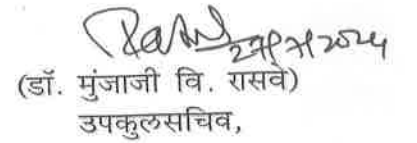 27/7/2024
(डॉ. मुंजाजी वि. रासवे)
उपकुलसचिव,